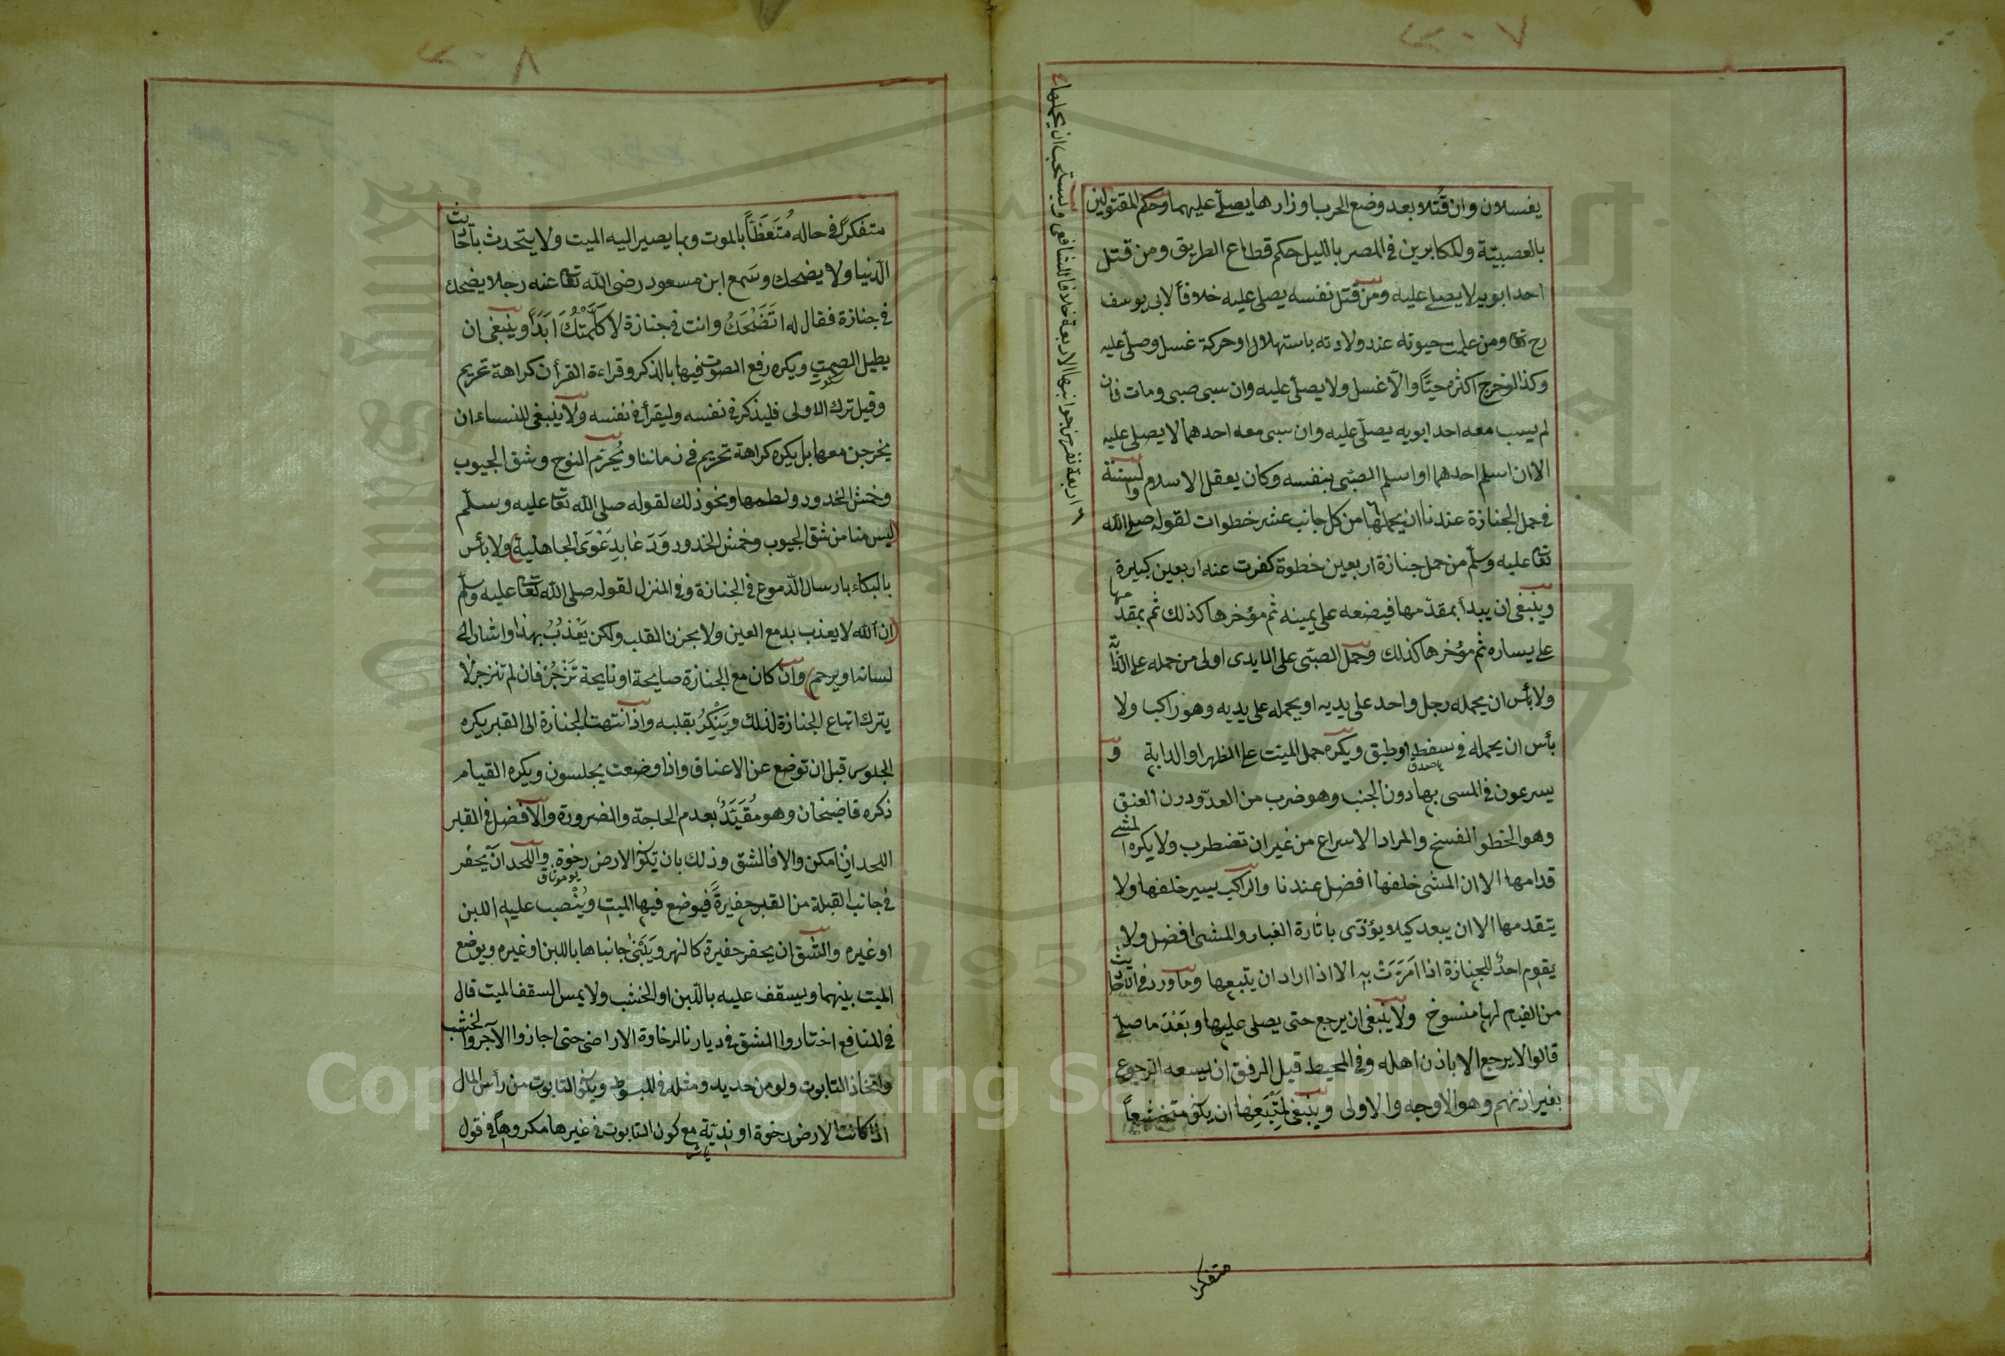 يغسلان وان قُتلا وبعد وضع الحرب اوزارها يصلّى عليهما وحكم المقتولين
بالعصبيّة والمكابرين فى المصر بالليل حكم قطاع الطريق ومن قتل
احد ابويه لا يصلى عليه ومن قتل نفسه يصلى عليه خلافاً لابى يوسف
رح تعا ومن علمت حيوته عند ولادته باستهلال او حركة غسل وصلّى عليه
وكذا لو خرج اكثره حيّاً والّا غسل ولا يصلّى عليه وان سبى صبى ومات فان
لم يسب معه احد ابويه يصلّى عليه وان سبى معه احدهما لا يصلى عليه
الا ان اسلم احدهما او اسلم الصبّى بنفسه وكان يعقل الاسلام والسنة
فى حمل الجنازة عندنا ان يحملها من كل جانب عشر خطوات لقوله صلى الله
تعا عليه وسلّم من حمل جنازة اربعين خطوة كفرت عنه اربعين كبيرة
وينبغى ان يبدأ بمقدّمها فيضعه على يمينه ثم مؤخرها كذلك ثم بمقدّمها
على يساره ثم مؤخرها كذلك وحمل الصبّى على الايدى اولى من حمله على الدابّة
ولا بأس ان يحمله رجل واحد على يديه او يحمله على يديه وهو راكب ولا
بأس ان يحمله فى سفط او طبق ويكره حمل الميت على الظهر او الدابة و
يسرعون فى المشى بها دون الخبب وهو ضرب من العدّو دون العنق
وهو الخطو الفسخ والمراد الاسراع من غير ان تضطرب ولا يكره المشى
قدامها الا ان المشى خلفها افضل عندنا والراكب يسير خلفها ولا
يتقدمها الا ان يبعد كيلا يؤذى باثارة الغبار والمشى افضل ولا
يقوم احدٌ للجنازة اذا امَرّت به الا اذا اراد ان يتبعها وما ورد فى الاحاديث
من القيام لها منسوخ ولا ينبغى ان يرجع حتى يصلى عليها وبَعْدَ ما صلّى
قالوا لا يرجع الا باذن اهله وفى المحيط قبل الدفن ان يسعه الرجوع
بغير اذنهم وهو الاوجه والاولى وينبغى لمتّبعها ان يكون متخشعاً
ويستحب ان يحملها
اربعة نفر من جوانبها الاربعة خلافا للشافعى
متفكرا
متفكراً فى حاله مُتعظاً بالموت وبما يصير اليه الميت ولا يتحدث باحاديث
الدّنيا ولا يضحك وسَمع ابن مسعود رضى الله تعا عنه رجلا يضحك
فى جنازة فقال له اتَضْحَكُ وانت فى جنازة لا كَلَّمْتُكَ ابَداً وينبغى ان
يطيل الصمت ويكره رفع الصوت فيها بالذكر وقراءة القرأن كراهة تحريم
وقيل ترك الاولى فليذكر فى نفسه وليقرأ فى نفسه ولا ينبغى للنساء ان
يخرجن معها بل يكره كراهة تحريم فى زماننا ويُحرّم النوح وشق الجيوب
وخمش الخدود ولطمها ونحو ذلك لقوله صلى الله تعا عليه وسلّم
ليس منا من شق الجيوب وخمش الخدود وَدَعَا بدعْوَى الجاهلية ولا بأس
بالبكاء بارسال الدّموع فى الجنازة وفى المنزل لقوله صلى الله تعا عليه وسلّم
ان الله لا يعذب بدمع العين ولا بحزن القلب ولكن يُعَذِبُ بهذا واشار الى
لسانه او يرحم وان كان مع الجنازة صايحة او نايحة تُزْجَرُ فان لم تنزجر لا
يترك اتباع الجنازة لذلك ويَنْكِرُ بقلبه واذا انتهت الجنازة الى القبر يكره
الجلوس قبل ان توضع عن الاعناق واذا وضعت يجلسون ويكره القيام
ذكره قاضيخان وهو مُقَيَّدٌ بعدم الحاجة والضرورة والافضل فى القبر
اللحد ان امكن والا فالشق وذلك بان تكون الارض رخوة واللحد ان يحفر
فى جانب القبلة من القبر حفيرةً فيوضع فيها الميت ويُنْصب عليه اللبن
او غيره والشّق ان يحفر حفيرة كالنهر ويَبْنَى جانباها باللبن او غيره ويوضع
الميت بينهما ويسقف عليه باللّبن او الخشب ولا يمس السقف الميت قال
فى المنافع اختاروا الشق فى ديارنا لرخاوة الاراضى حتى اجازوا الآجر والخشب
واتخاذ التابوت ولو من حديد ومثله فى المبسوط ويكون التابوت من رأس المال
اذا كانت الارض رخوة او نديّة مع كون التابوت فى غيرها مكروهاً فى قول
Copyright © King Saud University
1957